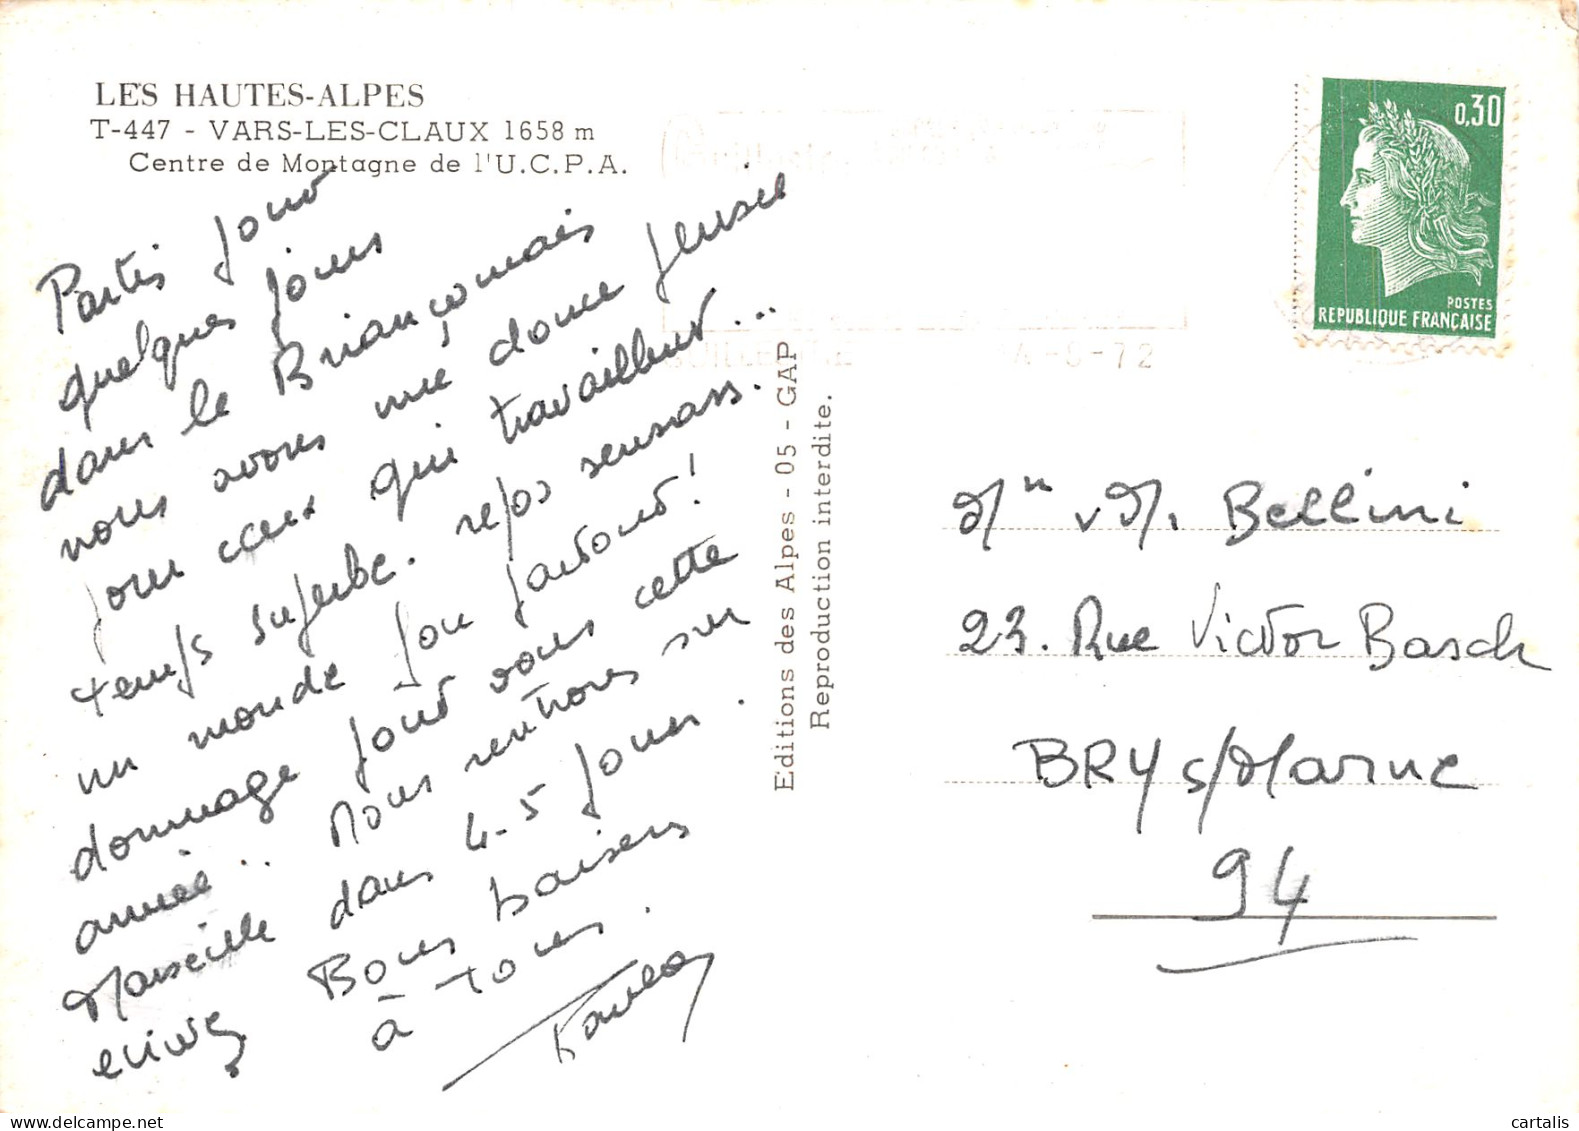 LES HAUTES-ALPES
T-447 - VARS-LES-CLAUX 1658 m
Centre de Montagne de l'U.C.P.A.
Partis pour
quelques jours
dans le Briançonnais
nous avons une douce pensée
pour ceux qui travaillent...
temps superbe. repos sensass.
un monde fou partout!
dommage pour vous cette
année.. Nous rentrons sur
Marseille dans 4-5 jours.
écrivez Bons baisers
à tous.
Editions des Alpes - 05 - GAP
Reproduction interdite.
0,30
POSTES
REPUBLIQUE FRANÇAISE
-8-72
Mr &M. Bellini
23. Rue Victor Basch
BRY s/Marne
94
cartalis
delcampe.net